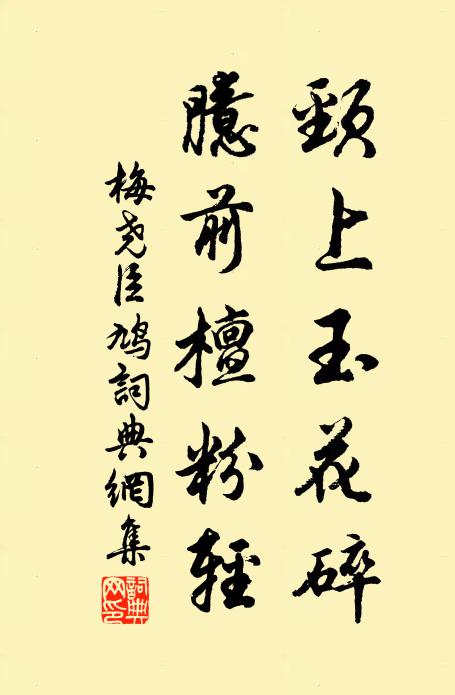 頸上玉花碎
臆前檀粉輕
梅堯臣鳩詞典網集
詞典